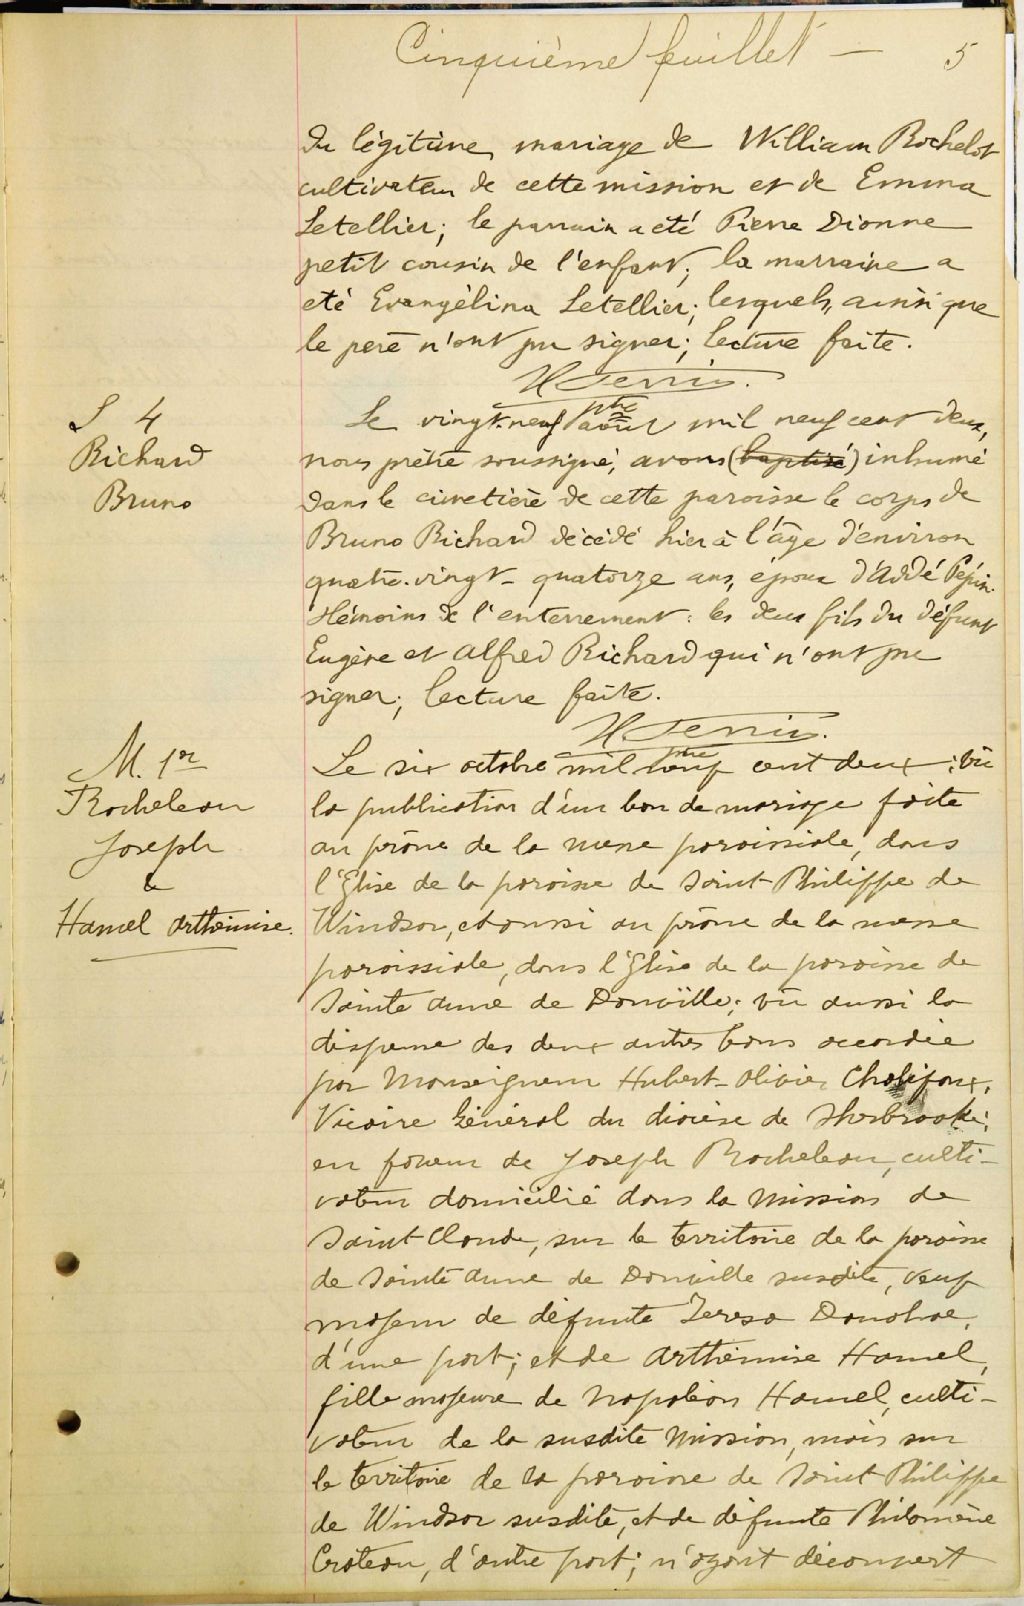 Cinquième feuillet — 5
du légitime mariage de William Rochelot
cultivateur de cette mission et de Emma
Letellier; le parrain a été Pierre Dionne
petit cousin de l'enfant; la marraine a
été Evangélina Letellier; lesquels, ainsi que
le père n'ont pu signer; lecture faite.
ptre
S 4
Richard
Bruno
Le vingt-neuf août mil neuf cent deux,
nous prêtre soussigné, avons (baptisé) inhumé
dans le cimetière de cette paroisse le corps de
Bruno Richard décédé hier à l'âge d'environ
quatre-vingt-quatorze ans, époux d'Addé Pépin.
témoins de l'enterrement: les deux fils du défunt
Eugène et Alfred Richard qui n'ont pu
signer; lecture faite.
ptre
M. 1er
Rocheleau
Joseph
&
Hamel Arthémise.
Le six octobre mil neuf cent deux; vû
la publication d'un ban de mariage faite
au prône de la messe paroissiale, dans
l'Eglise de la paroisse de Saint-Philippe de
Windsor, et aussi au prône de la messe
paroissiale, dans l'Eglise de la paroisse de
Sainte Anne de Danville; vû aussi la
dispense des deux autres bans accordée
par Monseigneur Hubert-Olivier Chalifoux,
Vicaire Général du diocèse de Sherbrooke;
en faveur de Joseph Rocheleau, culti-
vateur domicilié dans la Mission de
Saint-Claude, sur le territoire de la paroisse
de Sainte Anne de Danville susdite, veuf
majeur de défunte Teresa Donohoe,
d'une part; et de Arthémise Hamel,
fille majeure de Napoléon Hamel, culti-
vateur de la susdite Mission, mais sur
le territoire de la paroisse de Saint Philippe
de Windsor susdite, et de défunte Philomène
Croteau, d'autre part; n'ayant découvert